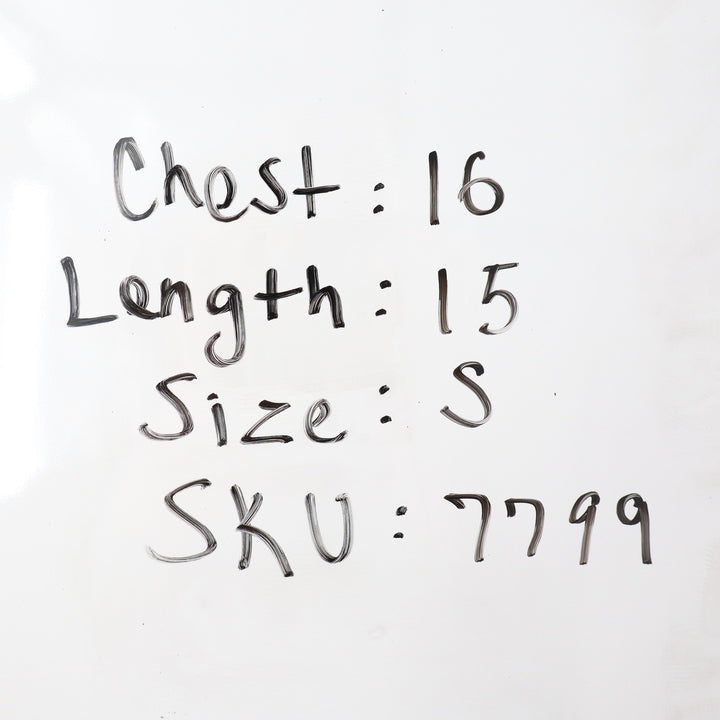 Chest: 16
Length: 15
Size: S
SKU: 7799